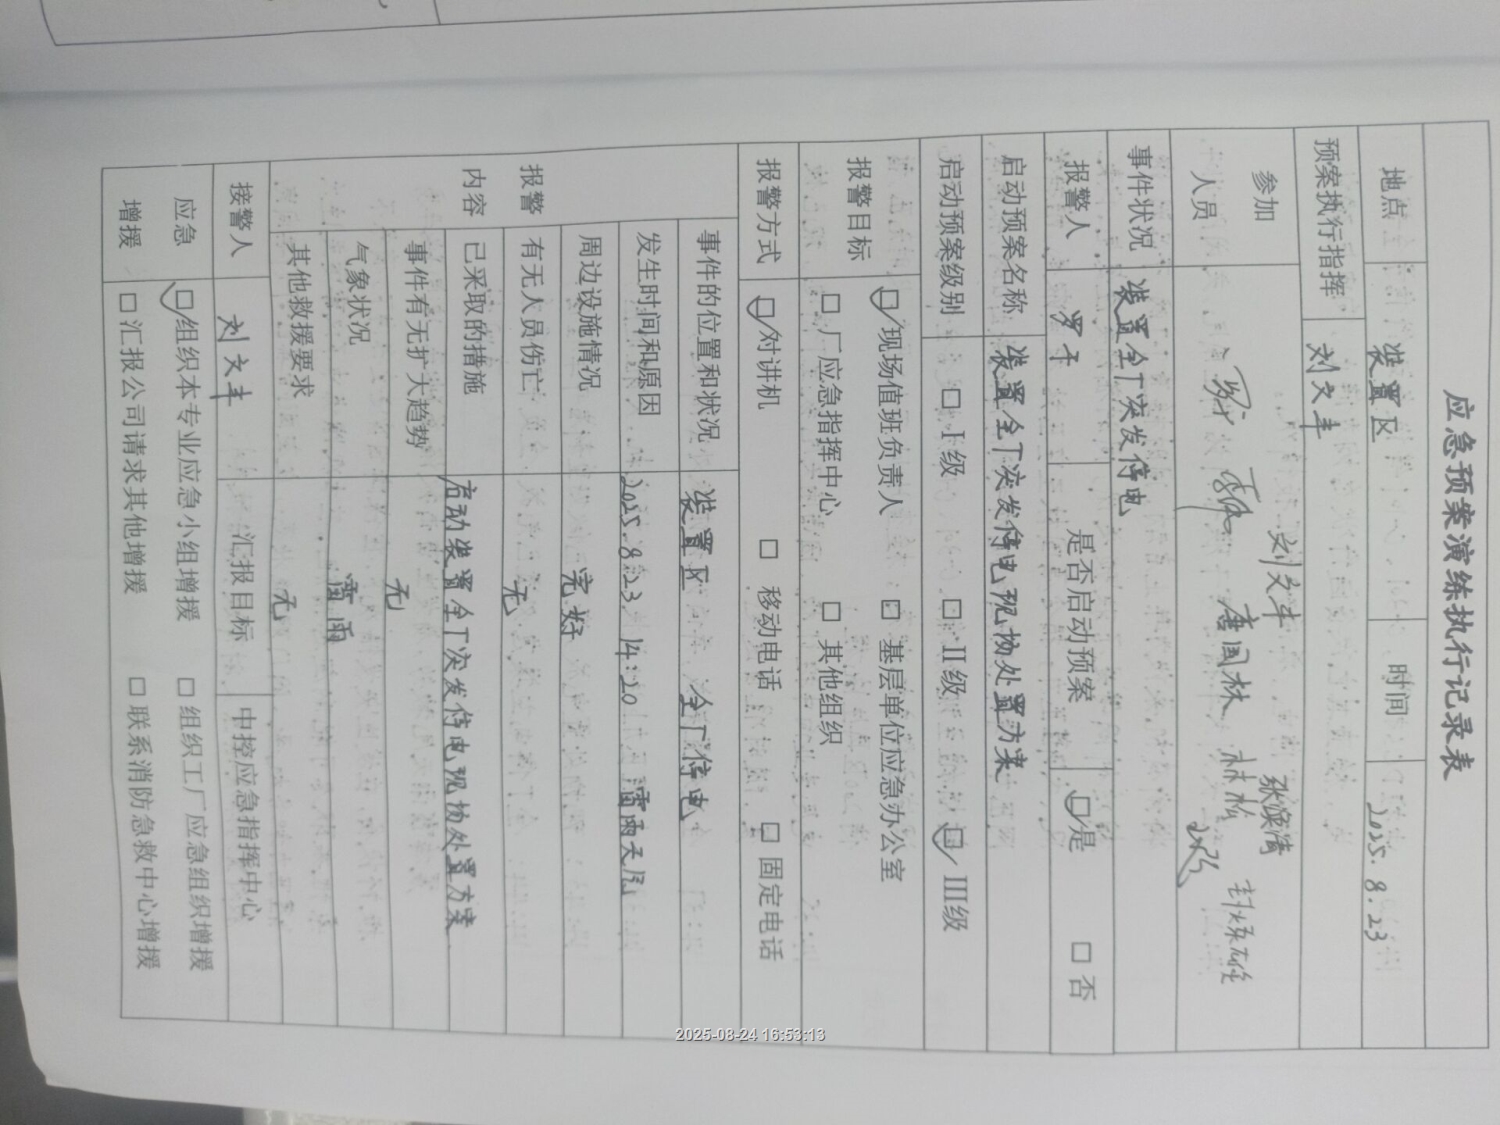 应急预案演练执行记录表
地点 装置区 时间 2025.8.23
预案执行指挥 刘文丰
参加人员 刘文丰 张滨清
唐国林 林松
事件状况 装置全厂突发停电
报警人 罗干 是否启动预案 ☑是 □否
启动预案名称 装置全厂突发停电现场处置方案
启动预案级别 □Ⅰ级 □Ⅱ级 ☑Ⅲ级
报警目标 ☑现场值班负责人 □基层单位应急办公室
□厂应急指挥中心 □其他组织
报警方式 ☑对讲机 □移动电话 □固定电话
报警内容
事件的位置和状况 装置区 全厂停电
发生时间和原因 2025.8.23. 14:20 雷雨天气
周边设施情况 完好
有无人员伤亡 无
已采取的措施 启动装置全厂突发停电现场处置方案
事件有无扩大趋势 无
气象状况 雷雨
其他救援要求 无
接警人 刘文丰 汇报目标 中控应急指挥中心
应急增援 ☑组织本专业应急小组增援 □组织工厂应急组织增援
□汇报公司请求其他增援 □联系消防急救中心增援
2025-08-24 16:53:13